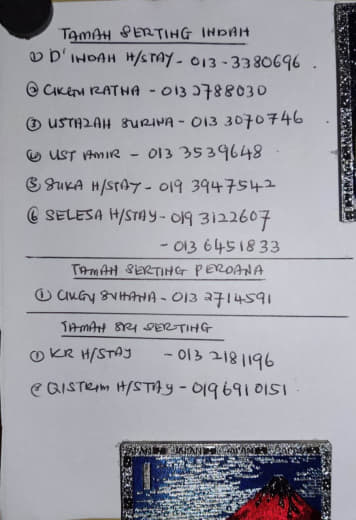 TAMAH SERTING INDAH
① D'INDAH H/STAY - 013-3380696.
② CIKGU RATNA - 013 2788030
③ USTAZAH SURINA - 013 3070746
④ UST AMIR - 013 3539648
⑤ SUKA H/STAY - 019 3947542
⑥ SELESA H/STAY - 019 3122607
- 013 6451833
TAMAH SERTING PERDANA
① CIKGU SUHANA - 013 2714591
TAMAH SRI SERTING
① KR H/STAY - 013 2181196
② QISTRIM H/STAY - 019 6910151
JAPAN JAPAN JAPAN